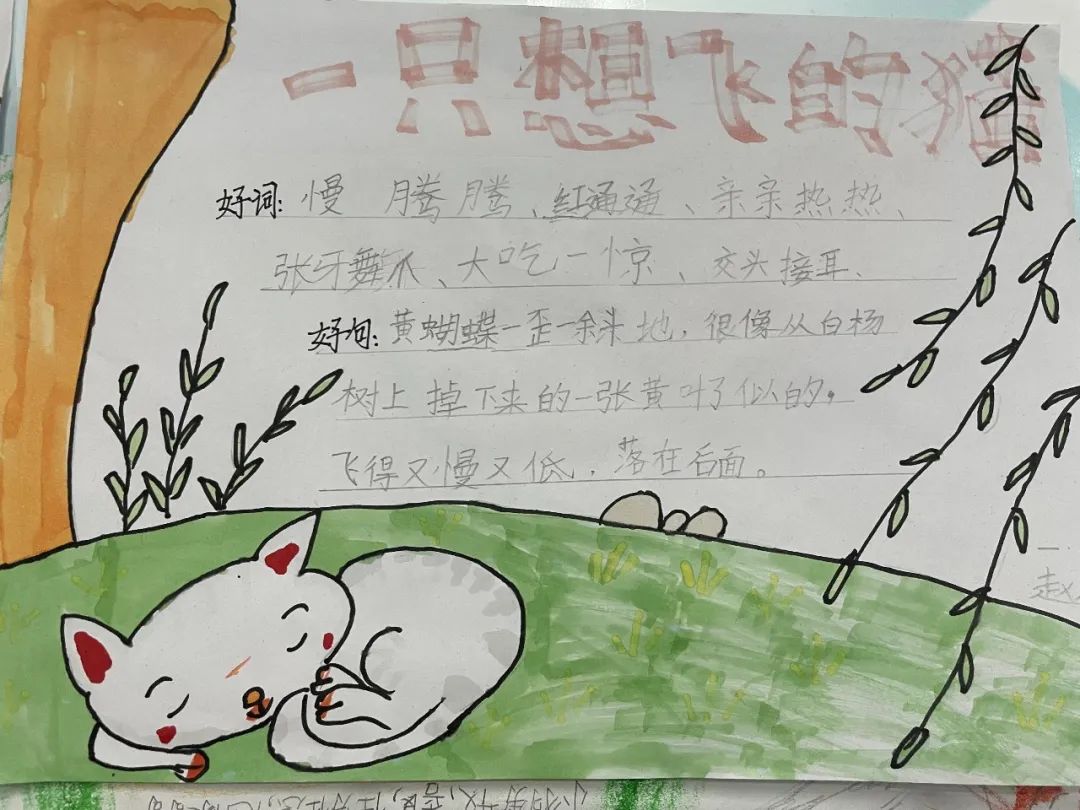 一只想飞的猫
好词：慢腾腾、红通通、亲亲热热、
张牙舞爪、大吃一惊、交头接耳、
好句：黄蝴蝶一歪一斜地，很像从白杨
树上掉下来的一张黄叶子似的。
飞得又慢又低，落在后面。
一.
赵